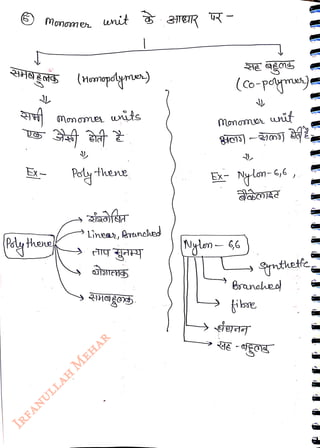 ⑤ Monomer unit के आधार पर -
समबहुलक (Homopolymer)
⇓
सभी Monomer units
एक जैसी होती है
⇓
Ex- Polythene
सह बहुलक
(Co-polymer)
⇓
Monomer unit
अलग-अलग होती है
⇓
Ex- Nylon-6,6,
बैकेलाइट
Polythene
→ संश्लेषित
→ Linear, Branched
→ ताप सुनम्य
→ योगात्मक
→ समबहुलक
Nylon-6,6
→ Synthetic
→ Branched
→ fibre
→ संघनन
→ सह-बहुलक
IRFANULLAH MEHAR